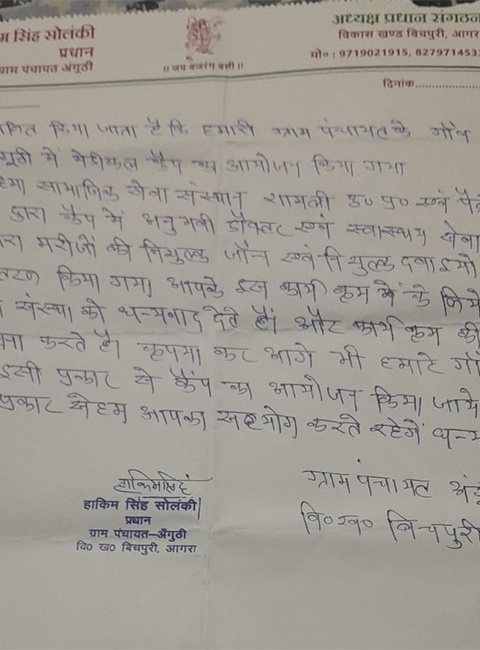 म सिंह सोलंकी
प्रधान
ग्राम पंचायत अंगुठी
!! जय बजरंग बली !!
अध्यक्ष प्रधान संगठन
विकास खण्ड बिचपुरी, आगरा
मो० : 9719021915, 827971453
दिनांक
किया जाता है कि हमारी ग्राम पंचायत के गाँव
में मेडीकल कैंप का आयोजन किया गया
सामाजिक सेवा संस्थान शामली उ० प्र० एवं
द्वारा कैंप में अनुभवी डॉक्टर एवं स्वास्थ्य सेवा
मरीजों की निशुल्क जाँच एवं निशुल्क दवाइयो
किया गया। आपके इस कार्य क्रम के लिये
संस्था को धन्यवाद देते हैं। और कार्य क्रम की
करते है। कृपया कर आगे भी हमारे गाँ
इसी प्रकार से कैंप का आयोजन किया जाये
प्रकार से हम आपका सहयोग करते रहेगें धन्य
हाकिम सिंह
हाकिम सिंह सोलंकी
प्रधान
ग्राम पंचायत-अँगुठी
वि० ख० बिचपुरी, आगरा
ग्राम पंचायत अंगू
वि० ख० बिचपुरी